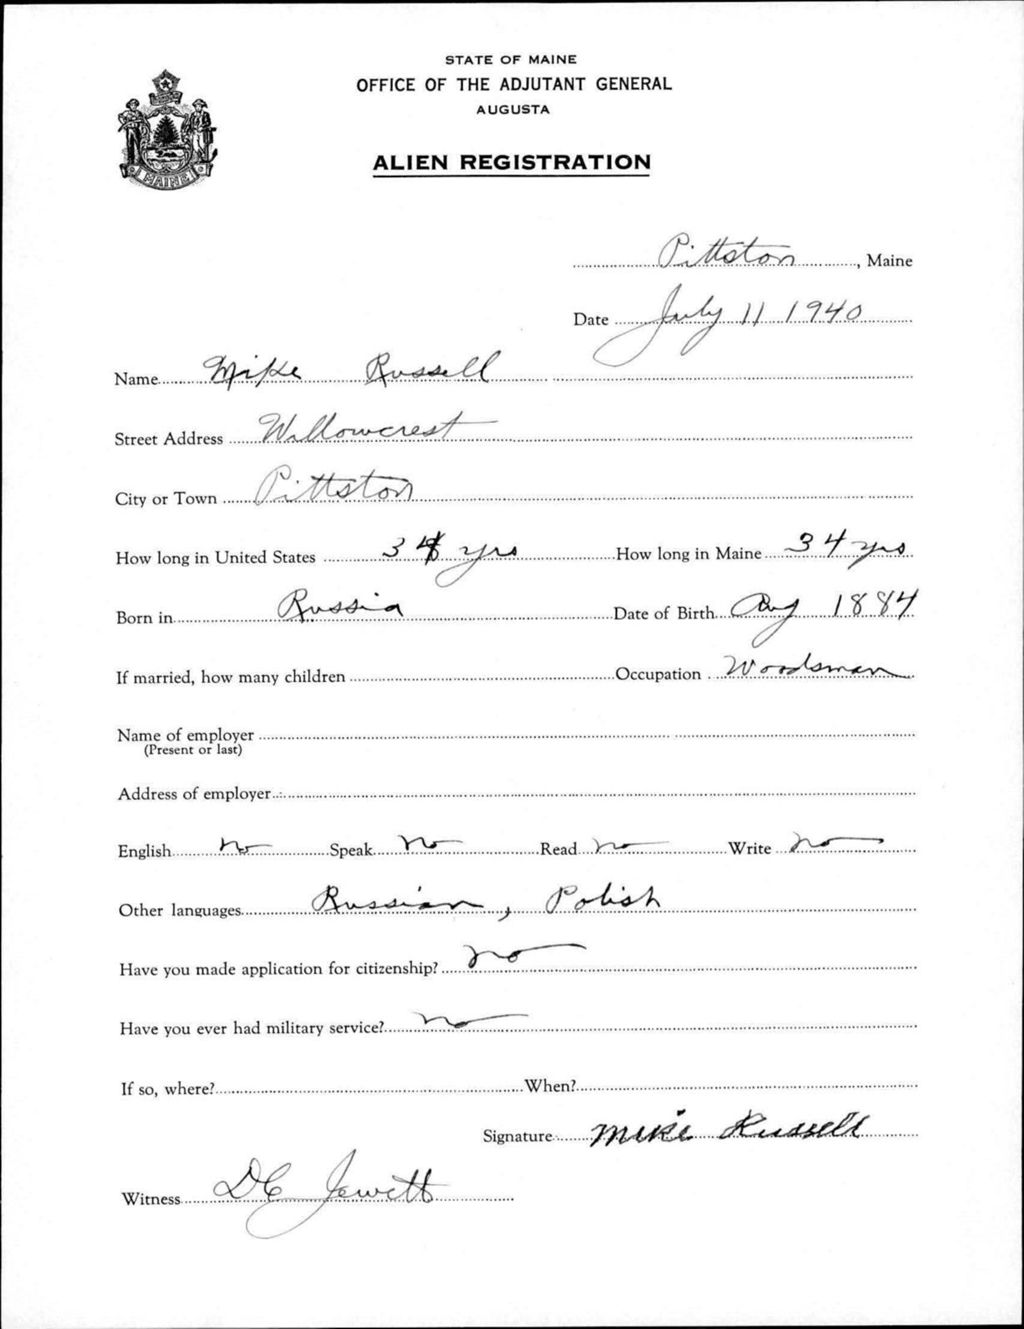 STATE OF MAINE
OFFICE OF THE ADJUTANT GENERAL
AUGUSTA
ALIEN REGISTRATION
MAINE
Pittston, Maine
Date July 11 1940
Name Mike Russell
Street Address Willowcrest
City or Town Pittston
How long in United States 34 yrs How long in Maine 34 yrs
Born in Russia Date of Birth Aug 1884
If married, how many children Occupation Woodsman
Name of employer
(Present or last)
Address of employer
English no Speak no Read no Write no
Other languages Russian, Polish
Have you made application for citizenship? no
Have you ever had military service? no
If so, where? When?
Signature Mike Russell
Witness DC Jewett